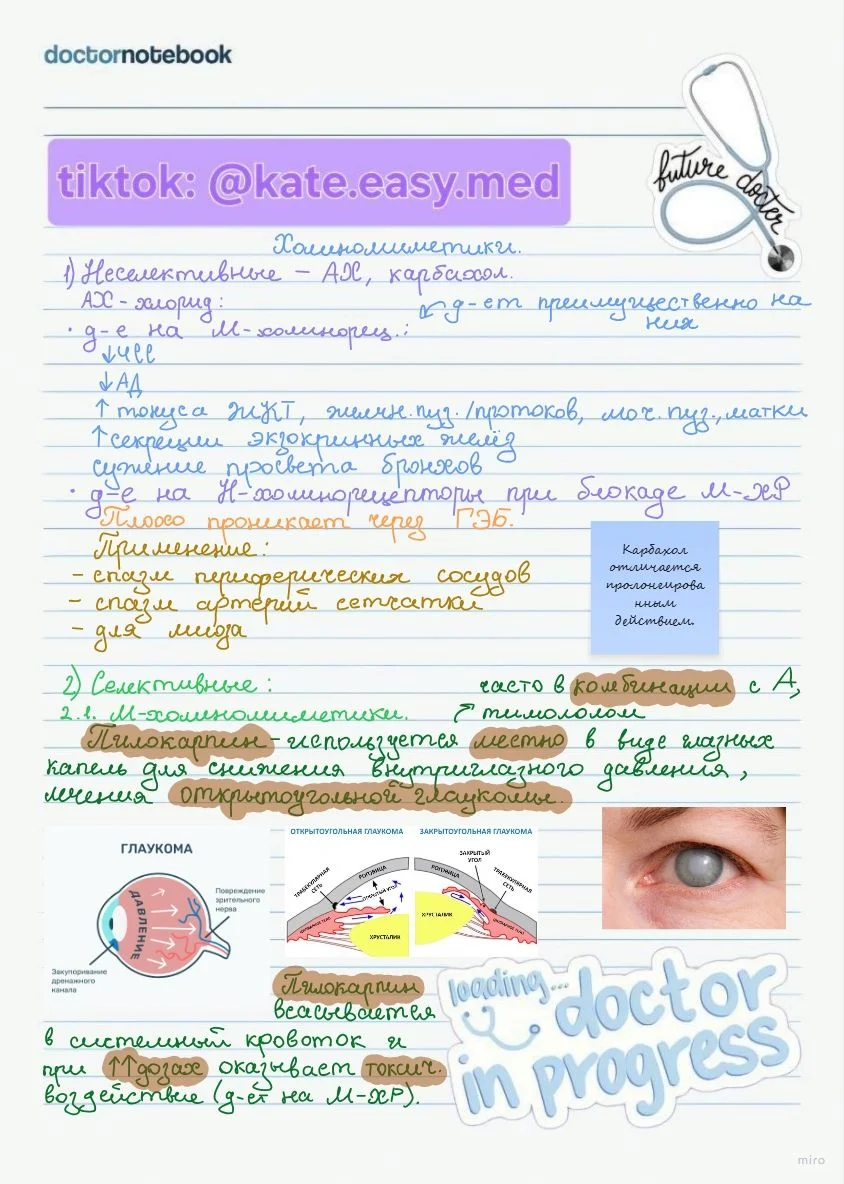 doctornotebook
future doctor
tiktok: @kate.easy.med
Холиномиметики.
1) Неселективные – АХ, карбахол.
АХ-хлорид:
д-ет преимущественно на
них
· д-е на М-холинорец.:
↓ЧСС
↓АД
↑ тонуса ЖКТ, желчн.пуз./протоков, моч. пуз., матки
↑ секреции экзокринных желёз
сужение просвета бронхов
· д-е на Н-холинорецепторы при блокаде М-ХР
Плохо проникает через ГЭБ.
Применение:
– спазм периферических сосудов
– спазм артерий сетчатки
– для миоза
Карбахол
отличается
пролонгирова
нным
действием.
2) Селективные:
часто в комбинации с А,
2.1. М-холиномиметики.
тимололом
Пилокарпин – используется местно в виде глазных
капель для снижения внутриглазного давления,
лечения открытоугольной глаукомы.
ГЛАУКОМА
ДАВЛЕНИЕ
Повреждение
зрительного
нерва
Закупоривание
дренажного
канала
ОТКРЫТОУГОЛЬНАЯ ГЛАУКОМА
ТРАБЕКУЛЯРНАЯ
СЕТЬ
РОГОВИЦА
ОТКРЫТЫЙ УГОЛ
ХРУСТАЛИК
ЗАКРЫТОУГОЛЬНАЯ ГЛАУКОМА
ЗАКРЫТЫЙ
УГОЛ
РОГОВИЦА
ТРАБЕКУЛЯРНАЯ
СЕТЬ
ХРУСТАЛИК
Пилокарпин
всасывается
в системный кровоток и
при ↑↑дозах оказывает токсич.
воздействие (д-ет на М-ХР).
loading...
doctor
in progress
miro